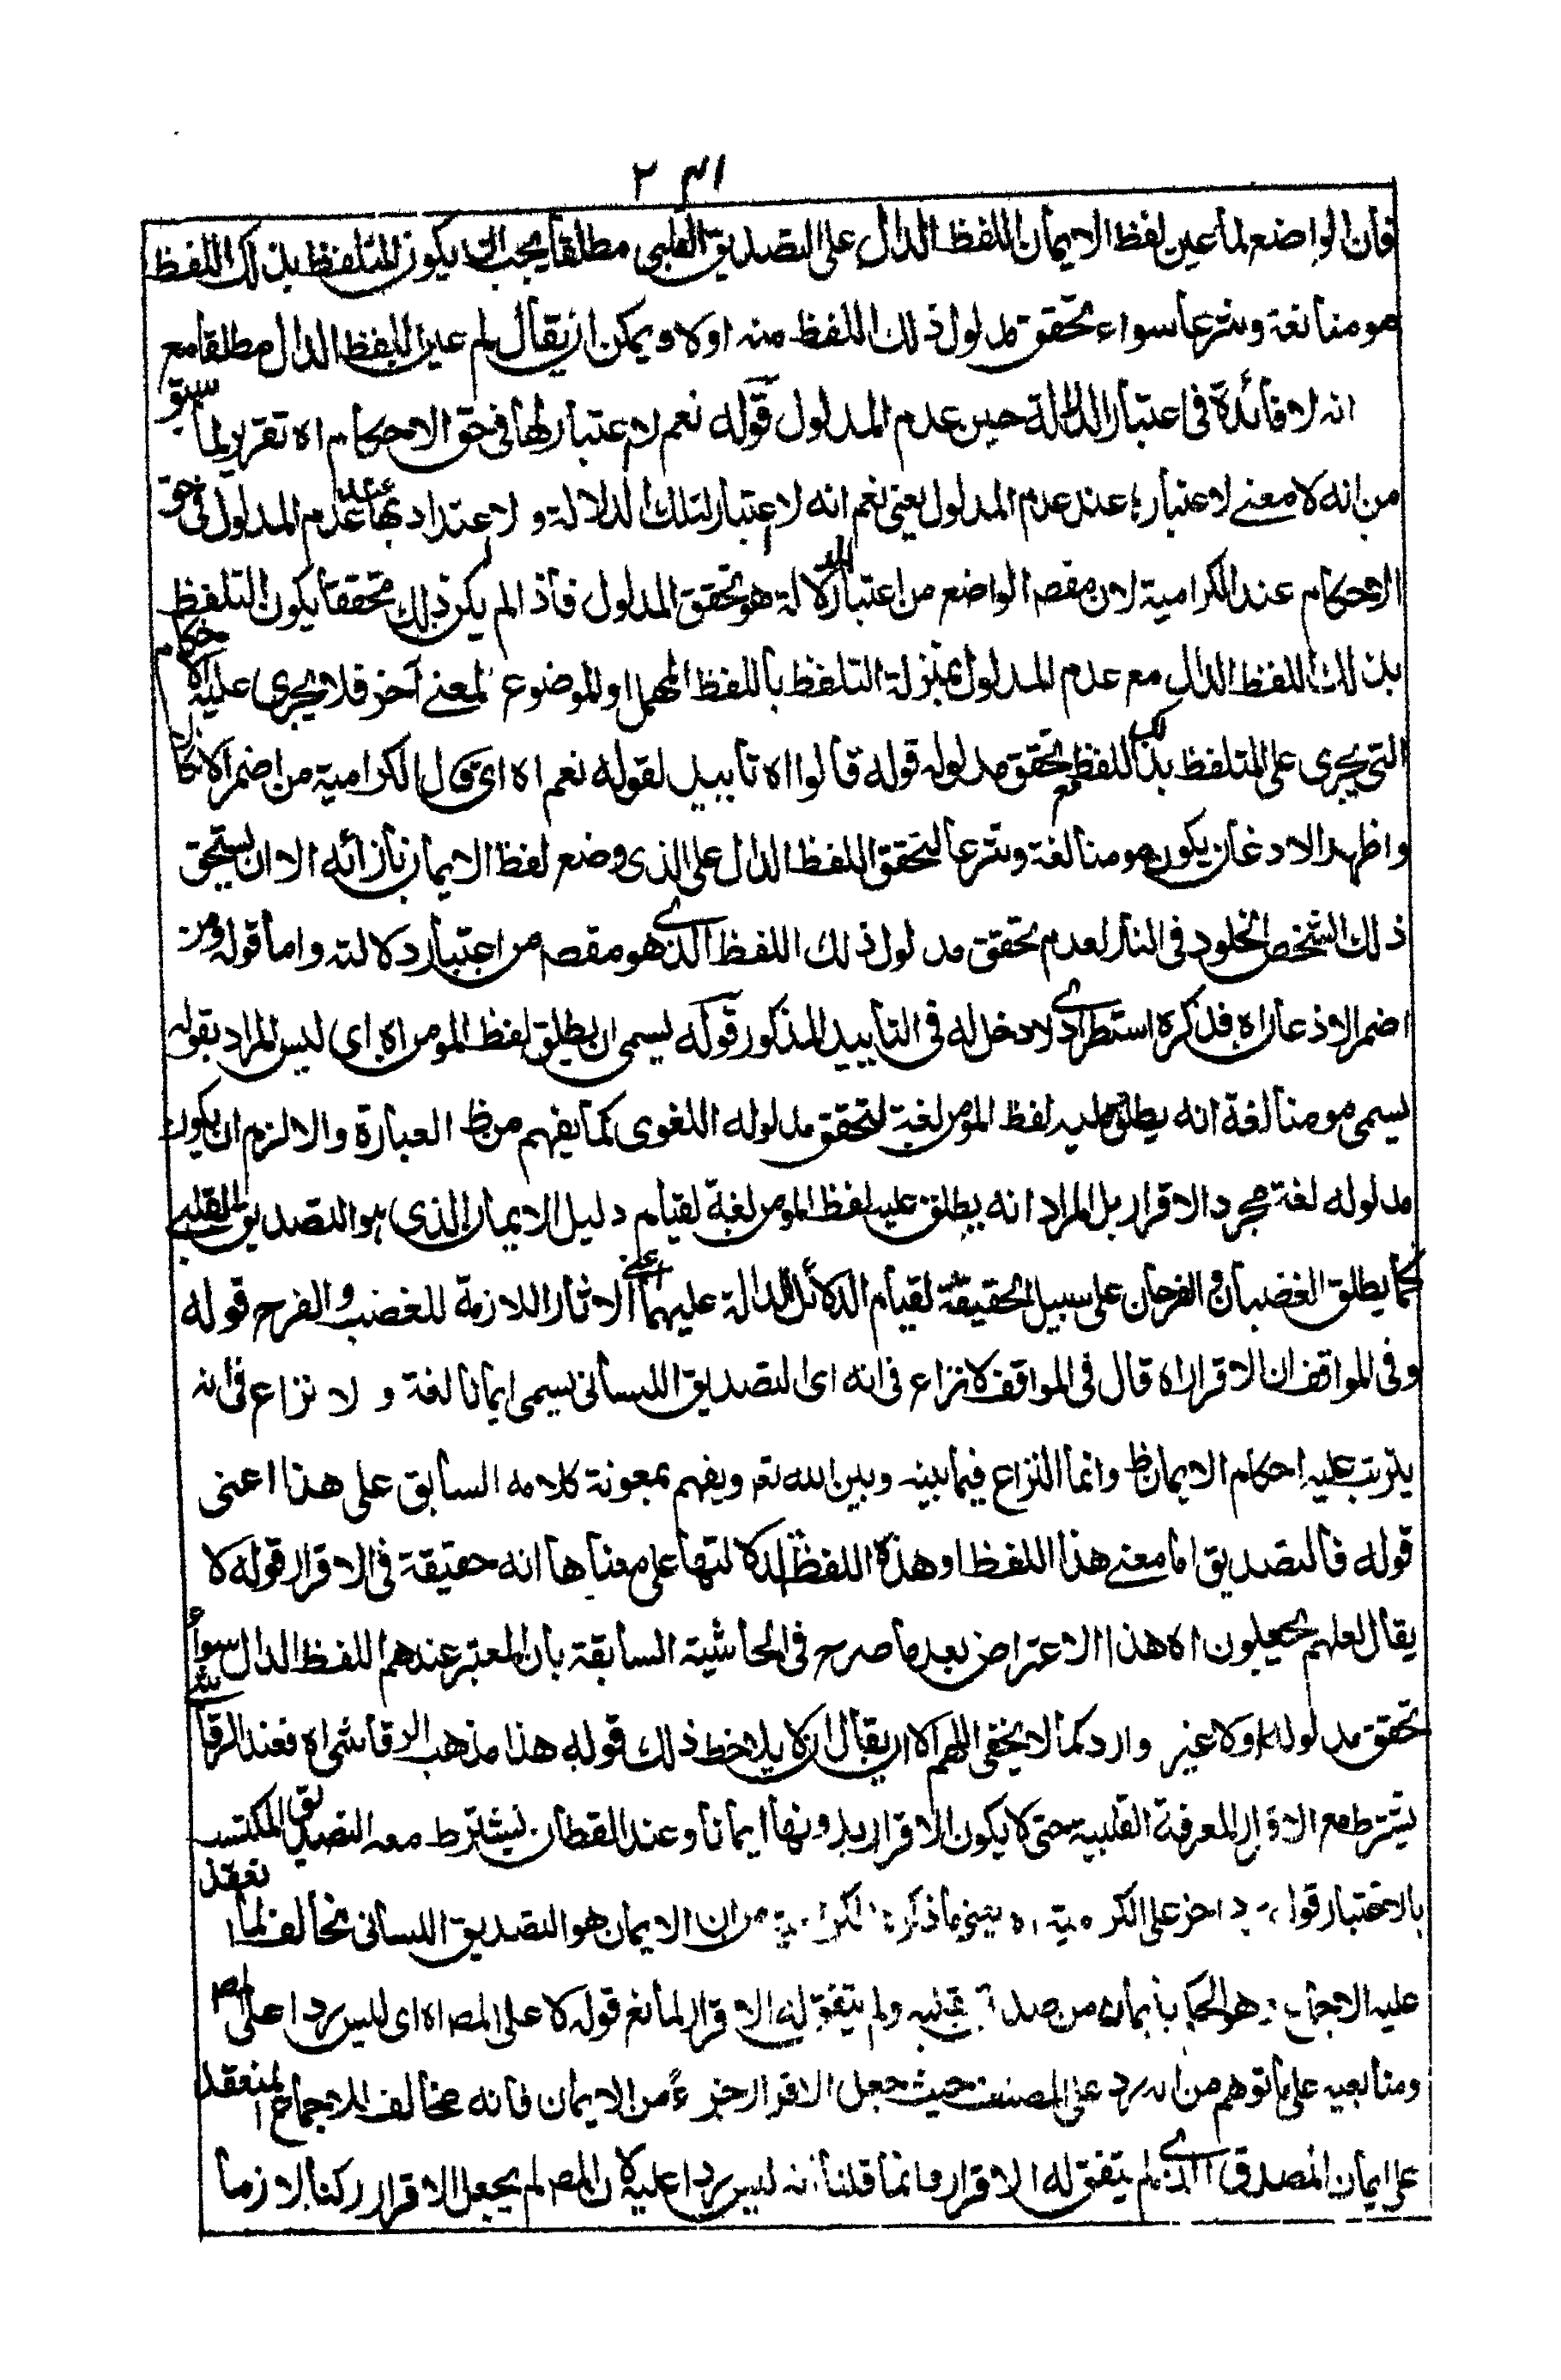 فان الواضع لما عين لفظ الايمان اللفظ الدال على التصديق القلبي مطلقا يجب ان يكون المتلفظ بذلك اللفظ
مومنا لغة وشرعا سواء تحقق مدلول ذلك اللفظ منه اولا ويمكن ان يقال لم عين اللفظ الدال مطلقا مع
انه لا فائدة فى اعتبار الدلالة حين عدم المدلول قوله نعم لا اعتبار لها فى حق الاحكام اه تقرير لما سبق
من انه لا معنى لاعتبارها عند عدم المدلول يعنى نعم انه لا اعتبار لتلك الدلالة ولا اعتداد بها عند عدم المدلول فى حق
الاحكام عند الكرامية لان مقصد الواضع من اعتبار الدلالة هو تحقق المدلول فاذا لم يكن ذلك محققا يكون التلفظ
بذلك اللفظ الدال مع عدم المدلول بمنزلة التلفظ باللفظ المهمل او الموضوع لمعنى آخر فلا يجرى عليه الاحكام
التى يجرى على المتلفظ بذلك اللفظ مع تحقق مدلوله قوله قالوا اه تاييد لقوله نعم اه اى قال الكرامية من اضمر الانكار
واظهر الاذعان يكون مومنا لغة وشرعا لتحقق اللفظ الدال على الذى وضع لفظ الايمان بازائه الا ان يستحق
ذلك الشخص الخلود فى النار لعدم تحقق مدلول ذلك اللفظ الذى هو مقصد من اعتبار دلالته واما قوله ومن
اضمر الاذعان اه فذكره استطرادى لا دخل له فى التاييد المذكور قوله يسمى ان يطلق لفظ المومن اه اى ليس المراد بقوله
يسمى مومنا لغة انه يطلق عليه لفظ المومن لغة لتحقق مدلوله اللغوى كما يفهم من ظ العبارة والا لزم ان يكون
مدلوله لغة مجرد الاقرار بل المراد انه يطلق عليه لفظ المومن لغة لقيام دليل الايمان الذى هو التصديق القلبى
كما يطلق الغضبان والفرحان على سبيل الحقيقة لقيام الدلائل الدالة عليهما اعنى الاثار اللازمة للغضب والفرح قوله
وفى المواقف ان الاقرار اه قال فى المواقف لا نزاع فى انه اى التصديق اللسانى يسمى ايمانا لغة ولا نزاع فى انه
يترتب عليه احكام الايمان ظ وانما النزاع فيما بينه وبين الله تعـ ويفهم بمعونة كلامه السابق على هذا اعنى
قوله فالتصديق اما معنى هذا اللفظ او هذه اللفظة لدلالتها على معناها انه حقيقة فى الاقرار قوله لا
يقال لعلهم يجعلون اه هذا الاعتراض بعد ما صرح فى الحاشية السابقة بان المعتبر عندهم اللفظ الدال سواء
تحقق مدلوله اولا غير وارد كما لا يخفى اللهم الا ان يقال ان لا يلاحظ ذلك قوله هذا مذهب الرقاشى اه فعند الرقاشى
يشترط مع الاقرار المعرفة القلبية حتى لا يكون الاقرار بدونها ايمانا وعند القطان يشترط معه التصديق المكتسب
بالاختيار على الكرامية اه يعنى ما ذكره الكرامية من ان الايمان هو التصديق اللسانى مخالف لما انعقد
عليه الاجماع وهو الحكم بايمان من صدق بقلبه ولم يتفق له الاقرار لمانع قوله لا على المصـ اه اى ليس ردا على المصـ
ومتابعيه على ما توهم من انه رد على المصنف حيث جعل الاقرار جزءً من الايمان فانه مخالف للاجماع المنعقد
على ايمان المصدق الذى لم يتفق له الاقرار وانما قلنا انه ليس ردا عليه لان المصـ لم يجعل الاقرار ركنا لازما